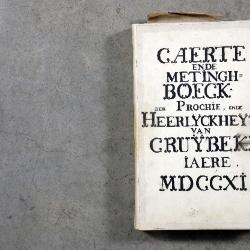 CAERTE
ENDE
METINGH=
BOECK·
DER PROCHIE, ENDE
HEERLYCKHEYT
VAN
CRUYBEKE
IAERE
MDCCXI